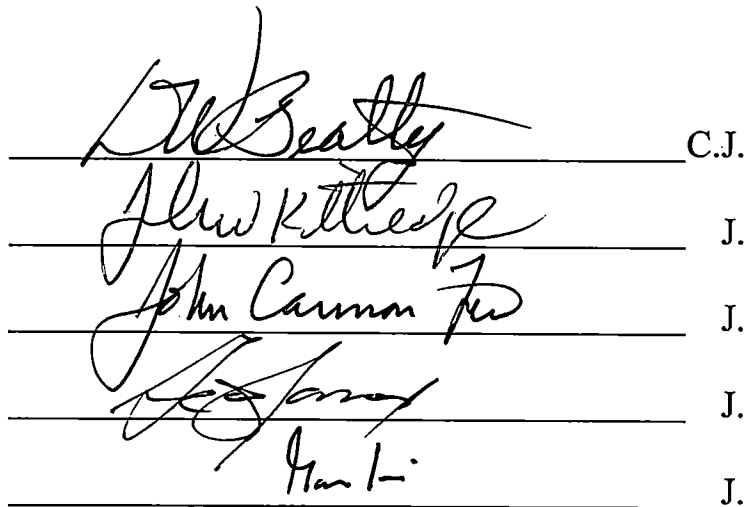 DW Beatty C.J.
John W Kittredge J.
John Cannon Few J.
J.
J.